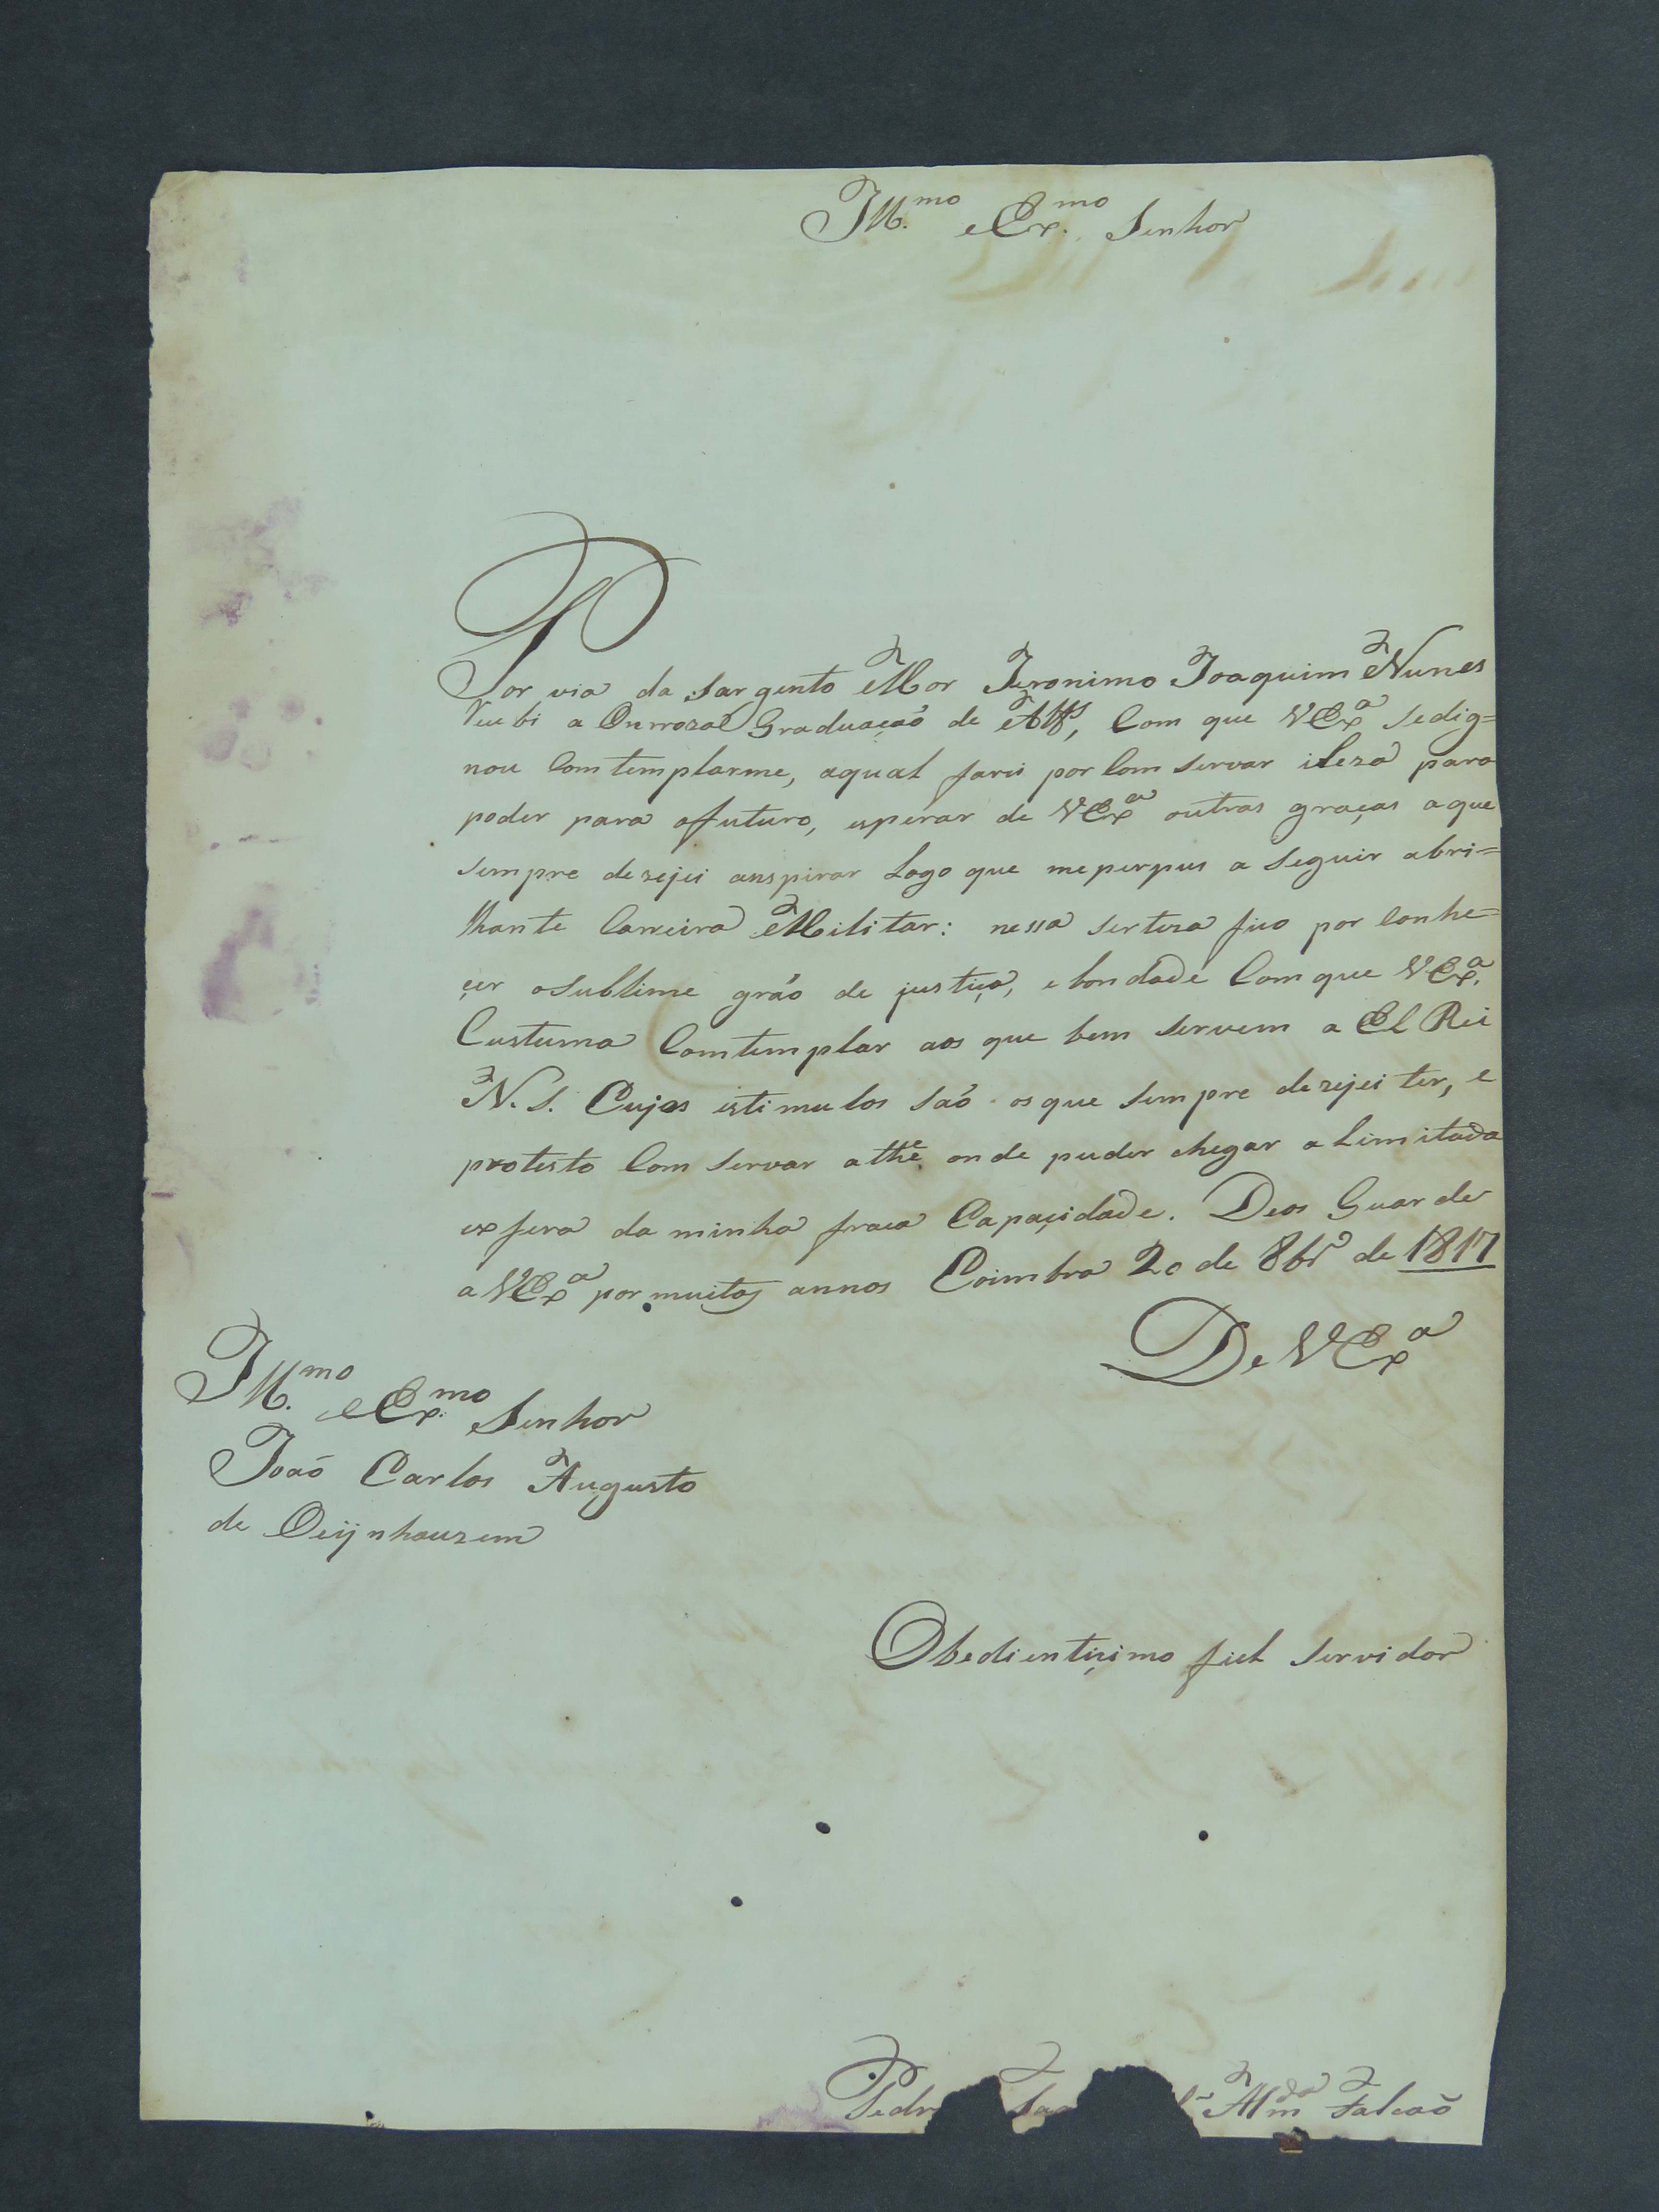 Ill.mo e Ex.mo Senhor
Por via do Sargento Mor Jeronimo Joaquim Nunes
Recebi a Onrroza Graduação de Alfs, Com que VExa sedig=
nou Comtemplarme, aqual farei por Comservar ileza para
poder para ofuturo, esperar de VExa outras graças aque
sempre desejei anspirar Logo que meperpus a seguir abri=
lhante Carreira Militar: nessa serteza fico por Conhe=
çer osublime gráo de justiça, ebondade Com que VExa.
Custuma Comtemplar aos que bem servem a El Rei
N. S. Cujos estimulos saó os que sempre desejei ter, e
protesto Comservar athe onde puder chegar a Limitada
exfera da minha fraca Capaçidade. Deos Guarde
a VExa por muitos annos Coimbra 20 de 8br.o de 1817
De VExa
Ill.mo e Ex.mo Senhor
Joaó Carlos Augusto
de Oeijnhauzem
Obedientiçimo fiel servidor
Pedr Alm.da Falcaõ